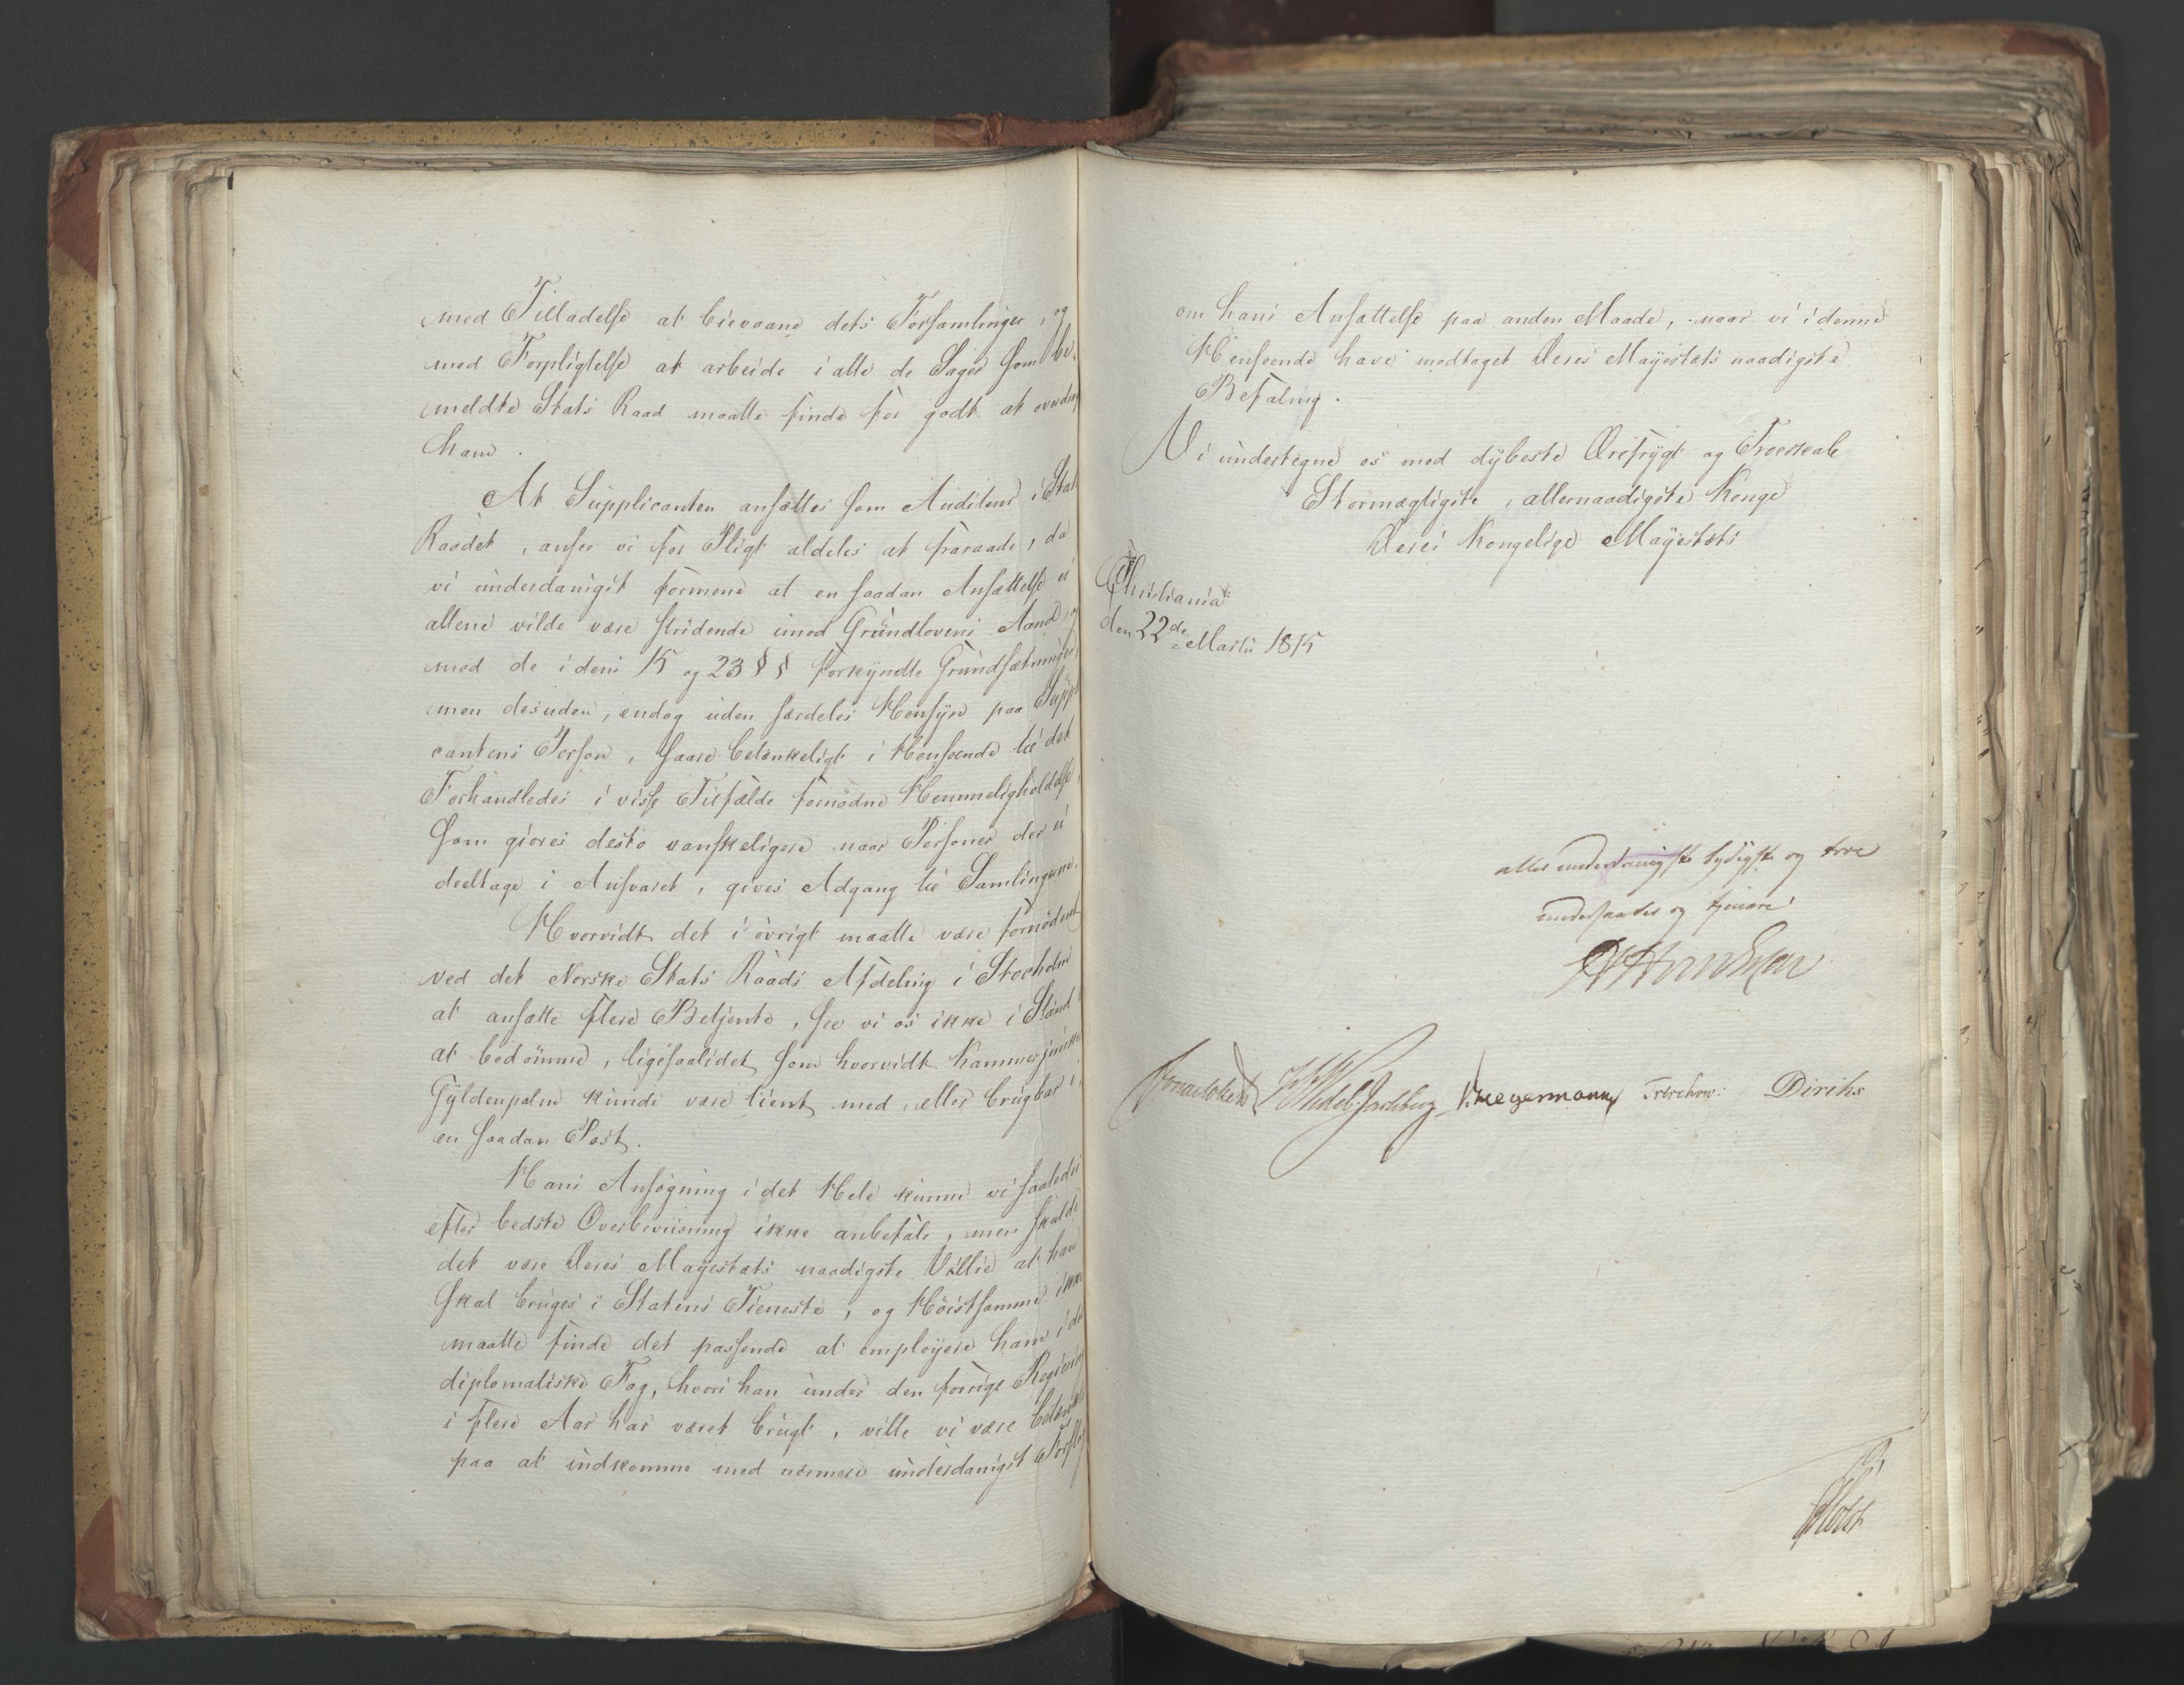 med Tilladelse at bievaane dets Forsamlinger, og
med Forpligtelse at arbeide i alle de Sager som be-
meldte Stats Raad maatte finde for godt at overdrag
ham.
At Supplicanten ansættes som Auditeur i Stats
Raadet, anser vi for Pligt aldeles at fraraade, da
vi underdanigst formene at en saadan Ansættelse ei
allene vilde være stridende imod Grundlovens Aand og
mod de i dens 15 og 23 §§ forkyndte Grundsætninger,
men desuden, endog uden særdeles Hensyn paa Suppli
cantens Person, saare betænkeligt i Henseende til det
Forhandledes i visse Tilfælde fornödne Hemmeligholdelse,
som giöres desto vanskeligere naar Personer der ei
deeltage i Ansvaret, gives Adgang til Samlingerne.
Hvorvidt det i övrigt maatte være fornödent
ved det Norske Stats Raads Afdeling i Stocholm
at ansætte flere Betjente, see vi os ikke i Stand
at bedömme, ligesaalidet som hvorvidt Kammerjunker
Gyldenpalm kunde være tient med, eller brugbar i
en saadan Post.
Hans Ansögning i det Hele kunne vi saaledes
efter bedste Overbeviisning ikke anbefale, men skulde
det være Deres Mayestæts naadigste Villie at han
skal bruges i Statens Tieneste, og Höistsamme ikke
maatte finde det passende at employere ham i det
diplomatiske Fag, hvori han under den forrige Regiering
i flere Aar har været brugt, ville vi være betænkte
paa at indkomme med nærmere underdanigst Forslag
om hans Ansættelse paa anden Maade, naar vi i denne
Henseende have modtaget Deres Mayestæts naadigste
Befaling.
Vi undertegne os med dybeste Ærefrygt og Troeskab
Stormægtigste, allernaadigste Konge
Deres Kongelige Mayestæts
Christiania
den 22de Martii 1815
aller underdanigste lydigste og troe
undersaatter og tjenere
Sommerhielm Wedel Jarlsberg Hegermann Treschow: Diriks
Holst